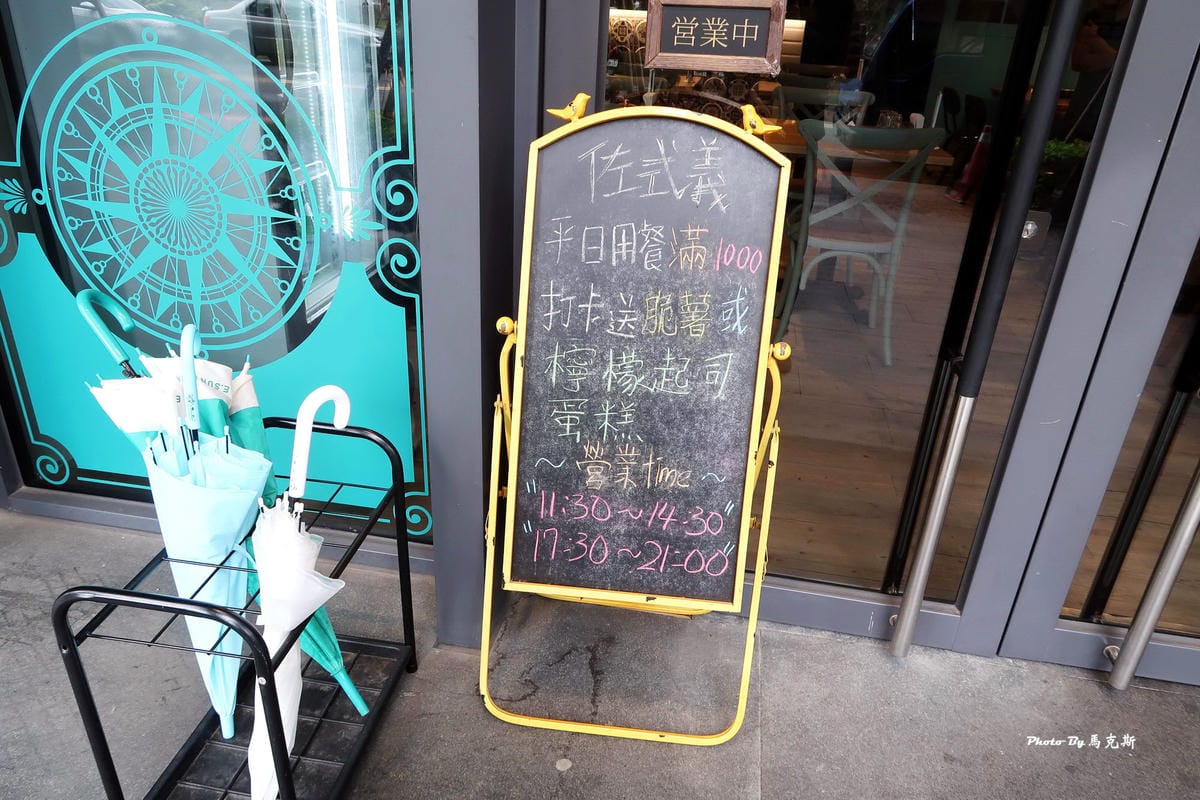 営業中
佐式義
平日用餐滿1000
打卡送脆薯或
檸檬起司
蛋糕
~營業time~
"11:30~14:30"
"17:30~21:00"
E.SUN
Photo By 馬克斯